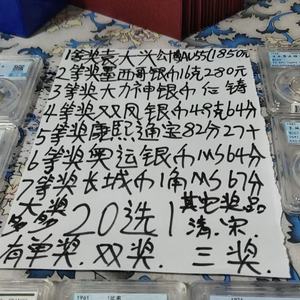 1等奖袁大头公博AU55(1850元
2等奖墨西哥银币16克280元
3等奖大力神银币仁铸
4等奖双凤银币48克64分
5等奖康熙通宝82分27+
6等奖奥运银币MS64分
7等奖长城币1角MS67分
大奖
多多
20选1
其它奖品
清.宋.
有单奖.双奖.三奖.